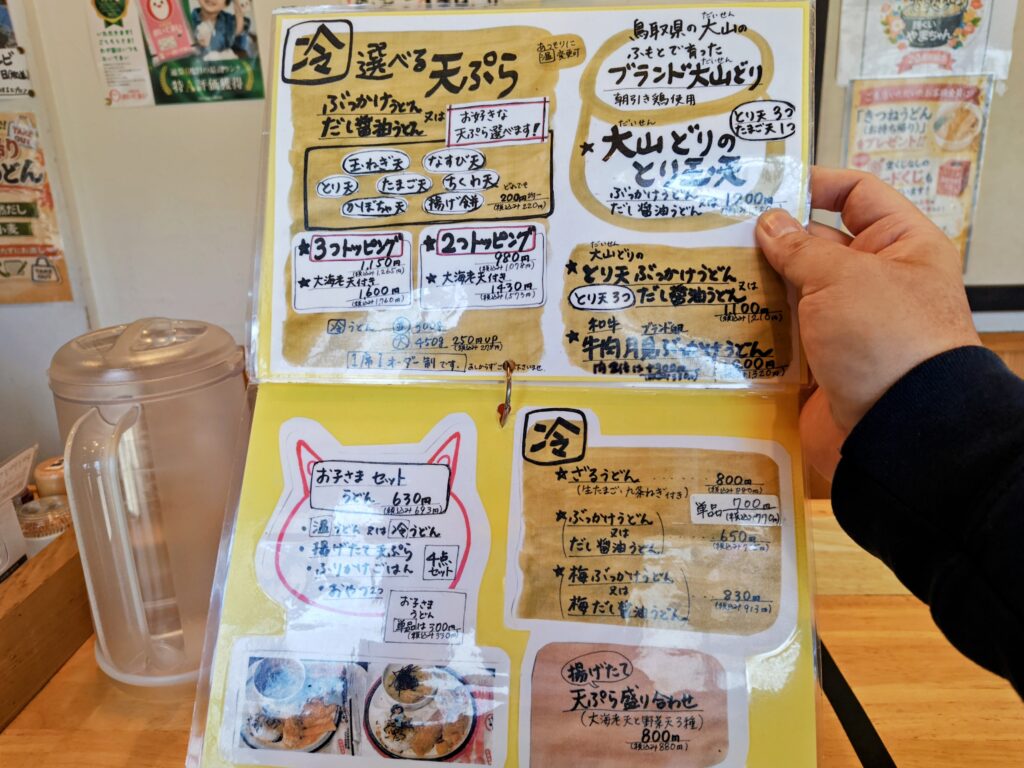 冷
選べる 天ぷら
ぶっかけうどん
だし醤油うどん 又は
お好きな
天ぷら選べます!
玉ねぎ天 なすび天
とり天 たまご天 ちくわ天
かぼちゃ天 揚げ餅
200円均一
(税込み220円)
★3つトッピング
1,150円
(税込み1265円)
★大海老天付き
1,600円
(税込み1760円)
★2つトッピング
980円
(税込み1078円)
★大海老天付き
1,430円
(税込み1573円)
冷うどん 並 300g
大 450g 250円UP
1席1オーダー制です。
だいせん
鳥取県の大山の
ふもとで育った
だいせん
ブランド大山どり
朝引き鶏使用
とり天3つ
たまご天1つ
だいせん
★大山どりの
とり玉天
ぶっかけうどん 又は
だし醤油うどん
1,200円
だいせん
大山どりの
★とり天ぶっかけうどん
又は
とり天3つ だし醤油うどん
1,100円
(税込み1210円)
和牛
★牛肉月見ぶっかけうどん
お子さまセット
うどん 630円
(税込み693円)
・温うどん 又は 冷うどん
・揚げたて天ぷら
・ふりかけごはん
・おやつ2つ
4点
セット
お子さま
うどん
単品は300円
(税込み330円)
冷
★ざるうどん 800円
(生たまご、九条ねぎ付き) (税込み880円)
単品 700円
(税込み770円)
★ぶっかけうどん
又は
だし醤油うどん
650円
★梅ぶっかけうどん
又は
梅だし醤油うどん
830円
(税込み913円)
揚げたて
天ぷら盛り合わせ
(大海老天と野菜天3種)
800円
(税込み880円)
特A評価獲得
「きつねうどん
(お持ち帰り)」
をプレゼント!!